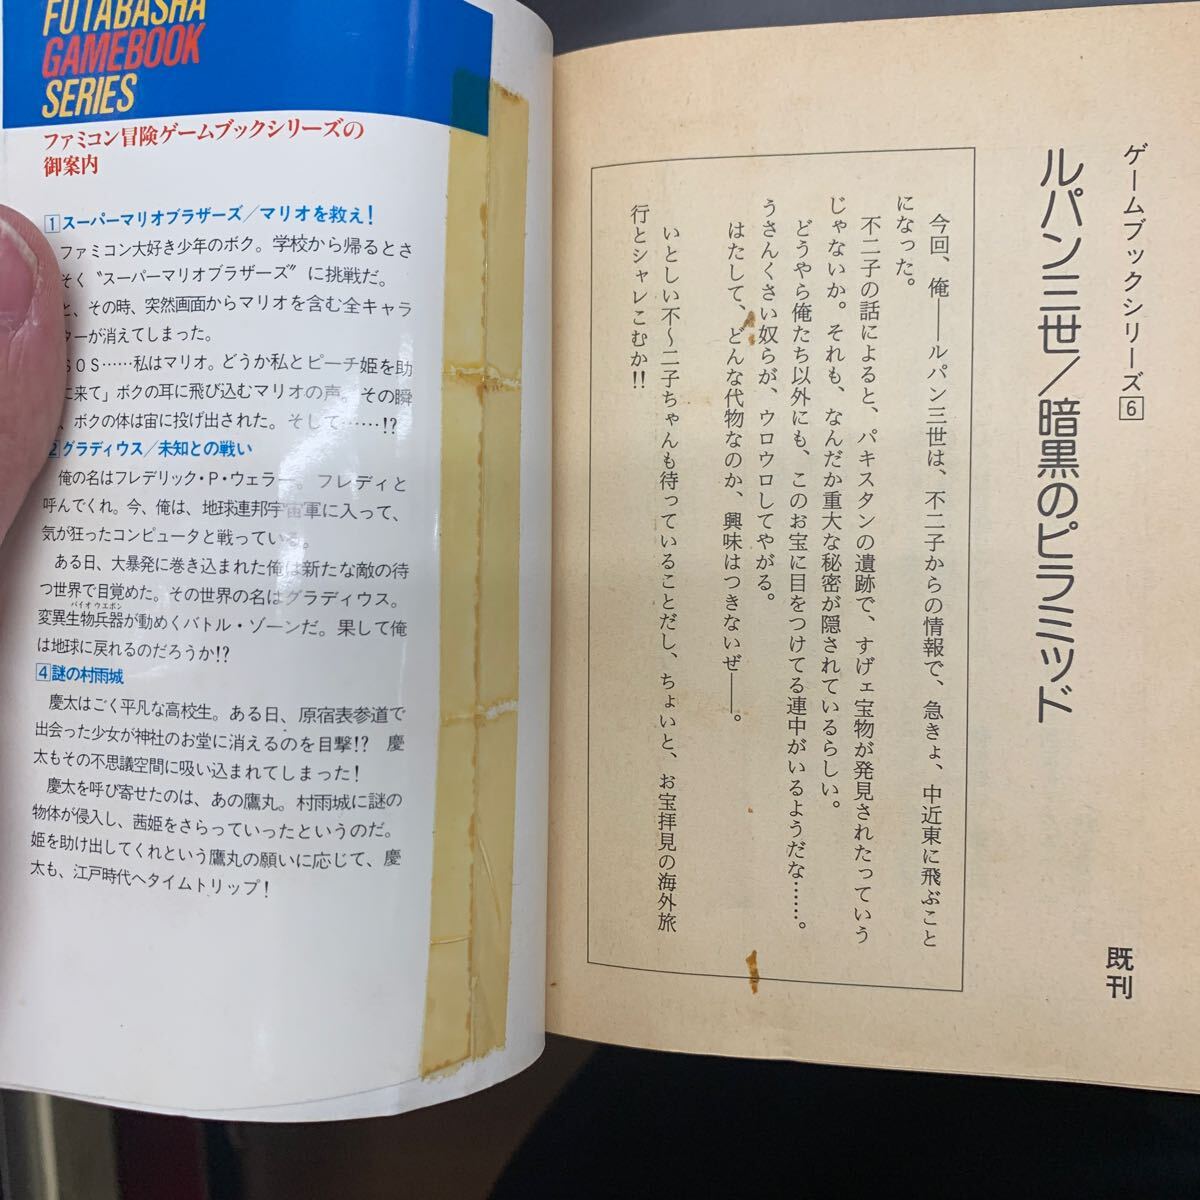 FUTABASHA
GAMEBOOK
SERIES
ファミコン冒険ゲームブックシリーズの
御案内
1スーパーマリオブラザーズ／マリオを救え！
ファミコン大好き少年のボク。学校から帰るとさ
そく〝スーパーマリオブラザーズ〟に挑戦だ。
と、その時、突然画面からマリオを含む全キャラ
ターが消えてしまった。
ＳＯＳ……私はマリオ。どうか私とピーチ姫を助
に来て」ボクの耳に飛び込むマリオの声。その瞬
、ボクの体は宙に投げ出された。そして……!?
2グラディウス／未知との戦い
俺の名はフレデリック・Ｐ・ウェラー。フレディと
呼んでくれ。今、俺は、地球連邦宇宙軍に入って、
気が狂ったコンピュータと戦っている。
ある日、大暴発に巻き込まれた俺は新たな敵の待
つ世界で目覚めた。その世界の名はグラディウス。
バイオ ウエポン
変異生物兵器が動めくバトル・ゾーンだ。果して俺
は地球に戻れるのだろうか!?
4謎の村雨城
慶太はごく平凡な高校生。ある日、原宿表参道で
出会った少女が神社のお堂に消えるのを目撃!?　慶
太もその不思議空間に吸い込まれてしまった！
慶太を呼び寄せたのは、あの鷹丸。村雨城に謎の
物体が侵入し、茜姫をさらっていったというのだ。
姫を助け出してくれという鷹丸の願いに応じて、慶
太も、江戸時代へタイムトリップ！
ゲームブックシリーズ6
ルパン三世／暗黒のピラミッド
既刊
今回、俺――ルパン三世は、不二子からの情報で、急きょ、中近東に飛ぶこと
になった。
不二子の話によると、パキスタンの遺跡で、すげェ宝物が発見されたっていう
じゃないか。それも、なんだか重大な秘密が隠されているらしい。
どうやら俺たち以外にも、このお宝に目をつけてる連中がいるようだな……。
うさんくさい奴らが、ウロウロしてやがる。
はたして、どんな代物なのか、興味はつきないぜ――。
いとしい不～二子ちゃんも待っていることだし、ちょいと、お宝拝見の海外旅
行とシャレこむか!!